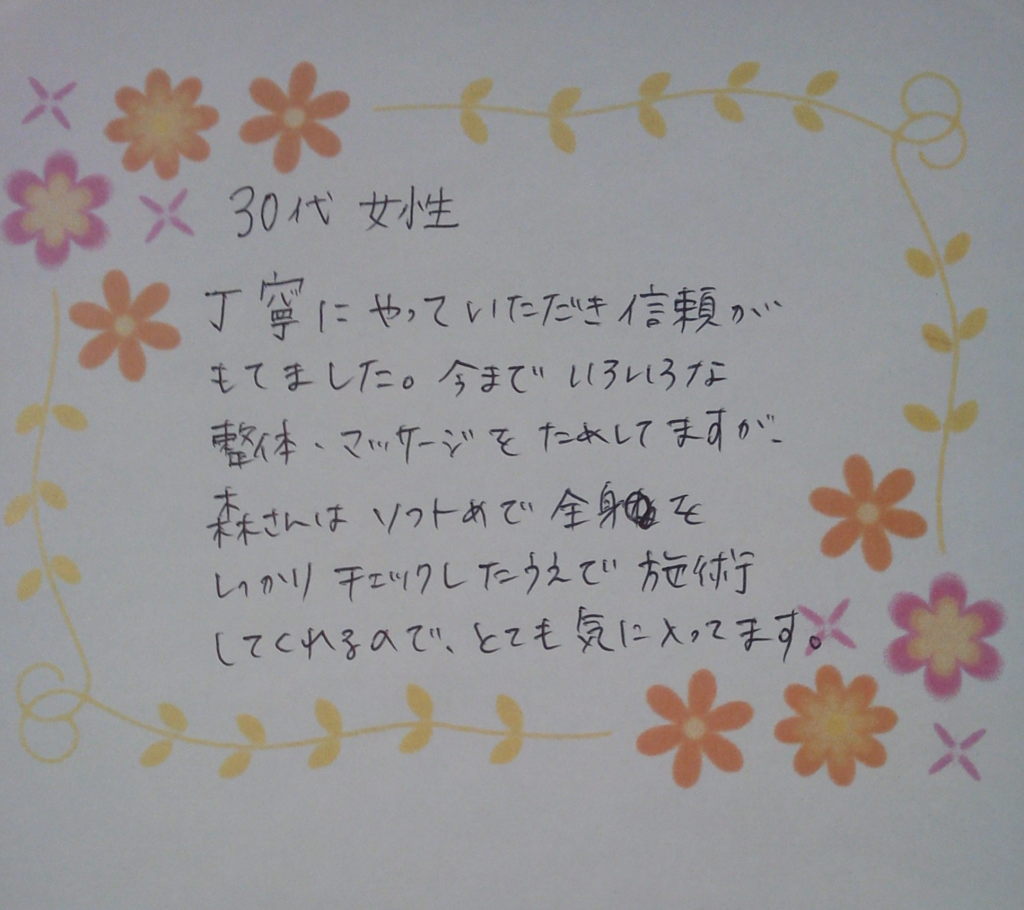 30代 女性
丁寧にやっていただき信頼が
もてました。今までいろいろな
整体、マッサージをためしてますが、
森さんはソフトめで全身を
しっかりチェックしたうえで施術
してくれるので、とても気に入ってます。